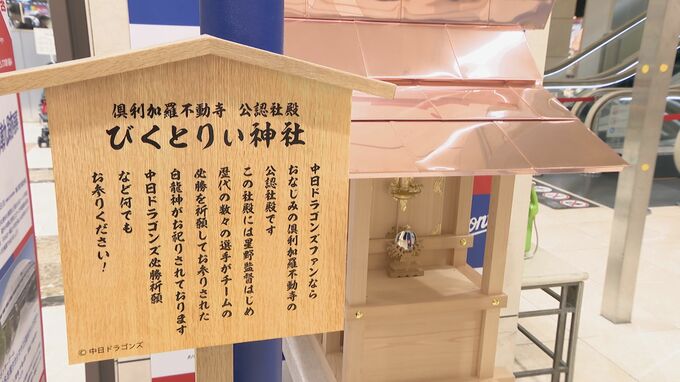 倶利加羅不動寺 公認社殿
びくとりぃ神社
中日ドラゴンズファンなら
おなじみの倶利加羅不動寺の
公認社殿です
この社殿には星野監督はじめ
歴代の数々の選手がチームの
必勝を祈願してお参りされた
白龍神がお祀りされております
中日ドラゴンズ必勝祈願
など何でも
お参りください!
© 中日ドラゴンズ